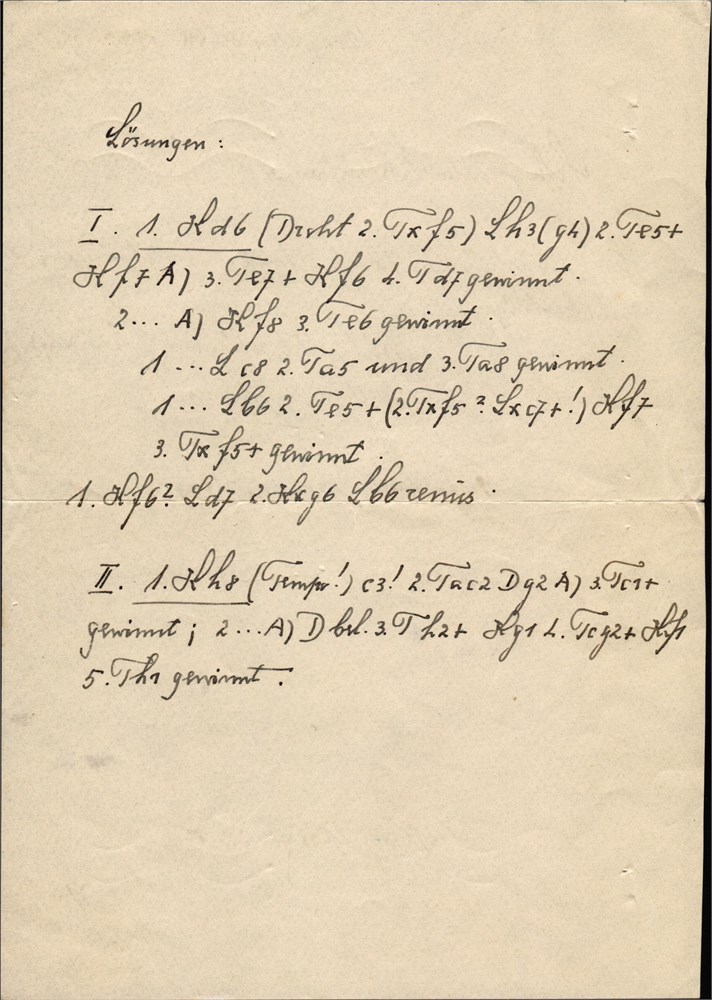 Lösungen:
I. 1. Kd6 (Droht 2. Txf5) Lh3(g4) 2. Te5+
Kf7 A) 3. Te7+ Kf6 4. Td7 gewinnt.
2... A) Kf8 3. Te6 gewinnt.
1 ... Lc8 2. Ta5 und 3. Ta8 gewinnt.
1 ... Lb6 2. Te5+ (2. Txf5? Lxc7+!) Kf7
3. Txf5+ gewinnt.
1. Kf6? Ld7 2. Kxg6 Lb6 remis.
II. 1. Kh8 (Tempo!) c3! 2. Tac2 Dg2 A) 3. Tc1+
gewinnt; 2 ... A) D bel. 3. Th2+ Kg1 4. Tcg2+ Kf1
5. Th1 gewinnt.